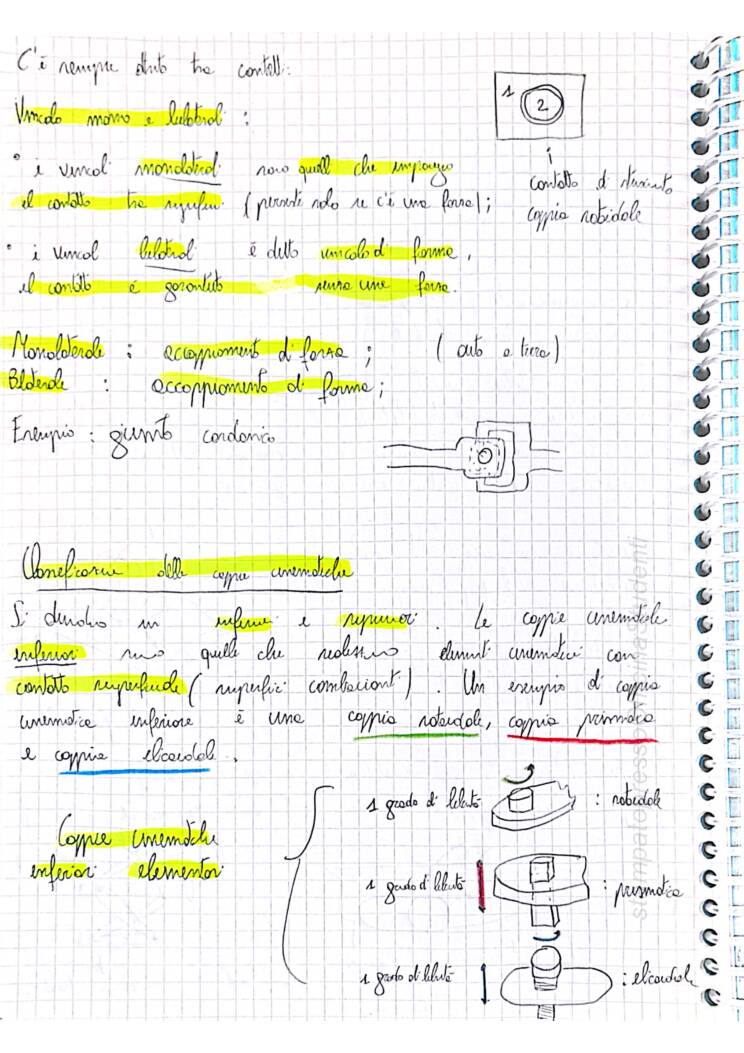 C'è sempre attrito tra contatti:
Vincolo mono e bilaterali :
1
2
• i vincoli monolaterali sono quelli che impongono
il contatto tra superfici (perenti solo se c'è una forza);
contatto di strisciamento
coppia rotoidale
• i vincoli bilaterali è detto vincolo di forma,
il contatto è garantito senza una forza.
Monolaterale : accoppiamento di forza ; (auto a terra)
Bilaterale : accoppiamento di forma ;
Esempio : giunto cardanico
Classificazione delle coppie cinematiche
Si dividono in inferiori e superiori. Le coppie cinematiche
inferiori sono quelle che realizzano elementi cinematici con
contatto superficiale (superfici combacianti). Un esempio di coppia
cinematica inferiore è una coppia rotoidale, coppia prismatica
e coppia elicoidale.
1 grado di libertà : rotoidale
Coppie cinematiche
inferiori elementari
1 grado di libertà : prismatica
1 grado di libertà : elicoidale